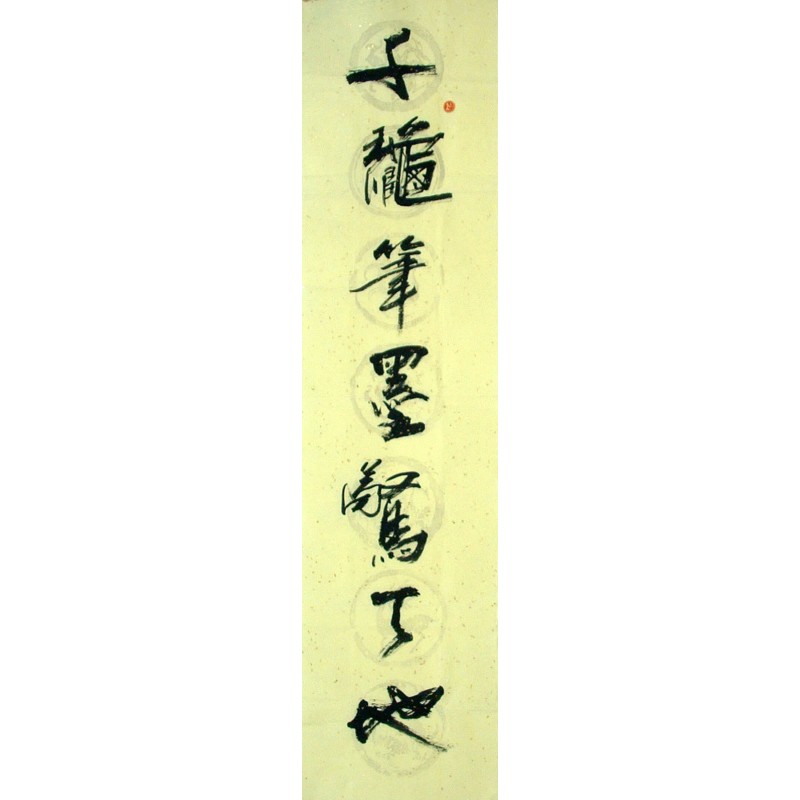 千龝筆墨驚天地